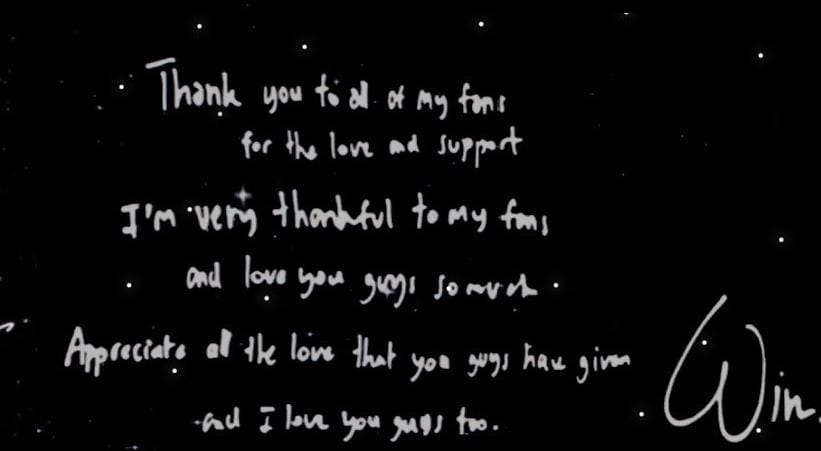 Thank you to all of my fans
for the love and support
I'm very thankful to my fans
and love you guys so much.
Appreciate all the love that you guys have given
and I love you guys too.
Win.